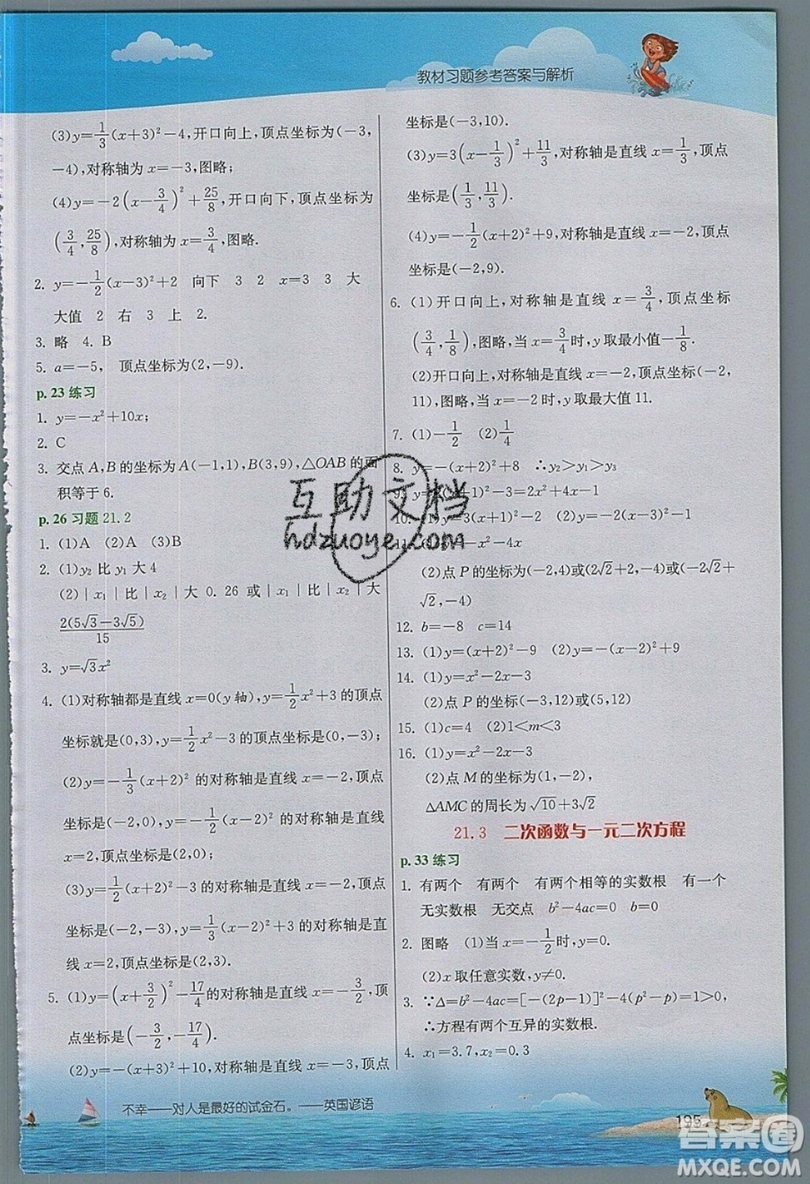 教材习题参考答案与解析
(3)y=1/3(x+3)²-4,开口向上,顶点坐标为(-3,
-4),对称轴为x=-3,图略;
(4)y=-2(x-3/4)²+25/8,开口向下,顶点坐标为
(3/4,25/8),对称轴为x=3/4,图略.
2. y=-1/2(x-3)²+2 向下 3 2 x=3 3 大
大值 2 右 3 上 2.
3. 略 4. B
5. a=-5, 顶点坐标为(2,-9).
p.23 练习
1. y=-x²+10x;
2. C
3. 交点A,B的坐标为A(-1,1),B(3,9),△OAB的面
积等于6.
p.26 习题21.2
1. (1)A (2)A (3)B
2. (1)y₂比y₁大4
(2)|x₁|比|x₂|大0.26或|x₁|比|x₂|大
2(5√3-3√5)/15
3. y=√3x²
4. (1)对称轴都是直线x=0(y轴),y=1/2x²+3的顶点
坐标就是(0,3),y=1/2x²-3的顶点坐标是(0,-3).
(2)y=-1/2(x+2)²的对称轴是直线x=-2,顶点
坐标是(-2,0);y=-1/2(x-2)²的对称轴是直线
x=2,顶点坐标是(2,0).
(3)y=1/2(x+2)²-3的对称轴是直线x=-2,顶点
坐标是(-2,-3);y=1/2(x-2)²+3的对称轴是直
线x=2,顶点坐标是(2,3).
5. (1)y=(x+3/2)²-17/4的对称轴是直线x=-3/2,顶
点坐标是(-3/2,-17/4).
(2)y=-(x+3)²+10的对称轴是直线x=-3,顶点
坐标是(-3,10).
(3)y=3(x-1/3)²+11/3,对称轴是直线x=1/3,顶点
坐标是(1/3,11/3).
(4)y=-1/2(x+2)²+9,对称轴是直线x=-2,顶点
坐标是(-2,9).
6. (1)开口向上,对称轴是直线x=3/4,顶点坐标是
(3/4,1/8),图略,当x=3/4时,y取最小值-1/8.
(2)开口向下,对称轴是直线x=-2,顶点坐标(-2,
11),图略,当x=-2时,y取最大值11.
7. (1)-1/2 (2)1/4
8. y=-(x+2)²+8 ∴y₂>y₁>y₃
9. y=2(x+1)²-3=2x²+4x-1
10. (1)y=-(x-2)²-1
(1)y=x²-4x
(2)点P的坐标为(-2,4)或(2√2+2,-4)或(-2√2
+2,-4)
12. b=-8 c=14
13. (1)y=(x+2)²+9 (2)y=-(x-2)²+9
14. (1)y=x²-2x-3
(2)点P的坐标(-3,12)或(5,12)
15. (1)c=4 (2)1<m<3
16. (1)y=x²-2x-3
(2)点M的坐标为(1,-2),
△AMC的周长为√10+3√2
21.3 二次函数与一元二次方程
p.33 练习
1. 有两个 有两个 有两个相等的实数根 有一个
无实数根 无交点 b²-4ac=0 b=0
2. 图略 (1)当x=-1/2时,y=0.
(2)x取任意实数,y≠0.
3. ∵Δ=b²-4ac=[-(2p-1)]²-4(-1)=1>0,
∴方程有两个互异的实数根.
4. x₁=3.7,x₂=0.3
不幸——对人是最好的试金石。——英国谚语
195
互助文档
hdzuoye.com
答案圈
MXQE.COM